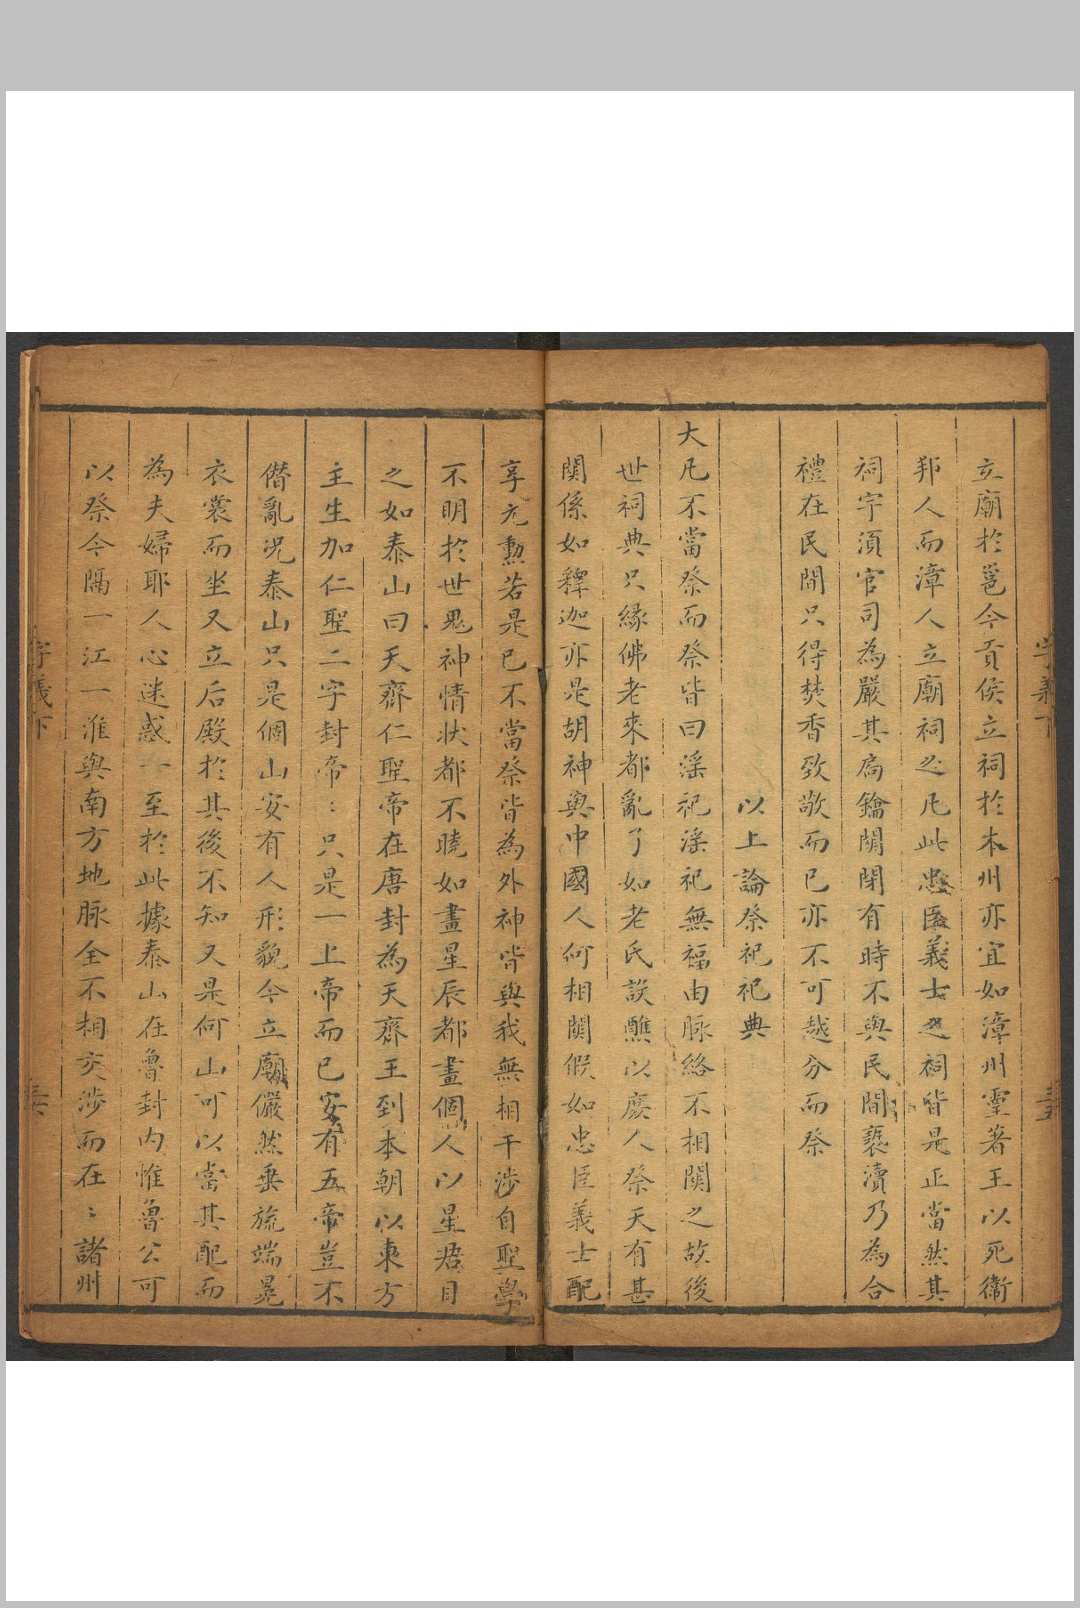 立廟於邕今貢侯立祠於本州亦宜如漳州靈著王以死衞
邦人而漳人立廟祠之凡此忠臣義士之祠皆是正當然其
祠宇須官司為嚴其扄鑰開閉有時不與民間褻瀆乃為合
禮在民間只得焚香致敬而已亦不可越分而祭
以上論祭祀祀典
大凡不當祭而祭皆曰淫祀淫祀無福由脉絡不相關之故後
世祠典只縁佛老來都亂了如老氏設醮以庻人祭天有甚
關係如釋迦亦是胡神與中國人何相關假如忠臣義士配
享元勳若是已不當祭皆為外神皆與我無相干涉自聖學
不明於世鬼神情狀都不曉如畫星辰都畫個人以星君目
之如泰山曰天齊仁聖帝在唐封為天齊王到本朝以東方
主生加仁聖二字封帝〻只是一上帝而已安有五帝豈不
僣亂况泰山只是個山安有人形貌今立廟儼然垂旒端冕
衣裳而坐又立后殿於其後不知又是何山可以當其配而
為夫婦耶人心迷惑一至於此據泰山在魯封内惟魯公可
以祭今隔一江一淮與南方地脉全不相交渉而在〻諸州
字義下
字義下